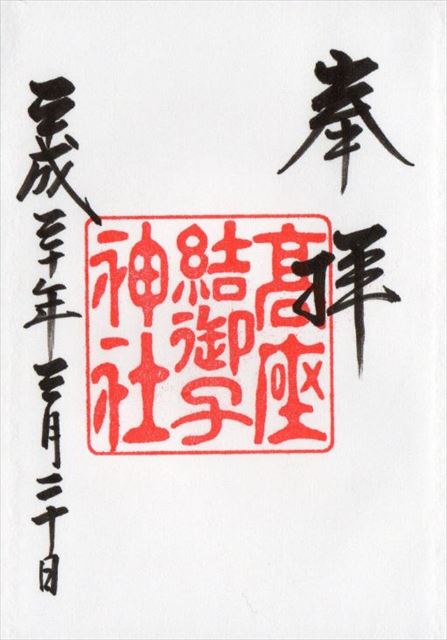 奉拝
高座
結御子
神社
平成三十年三月二十日